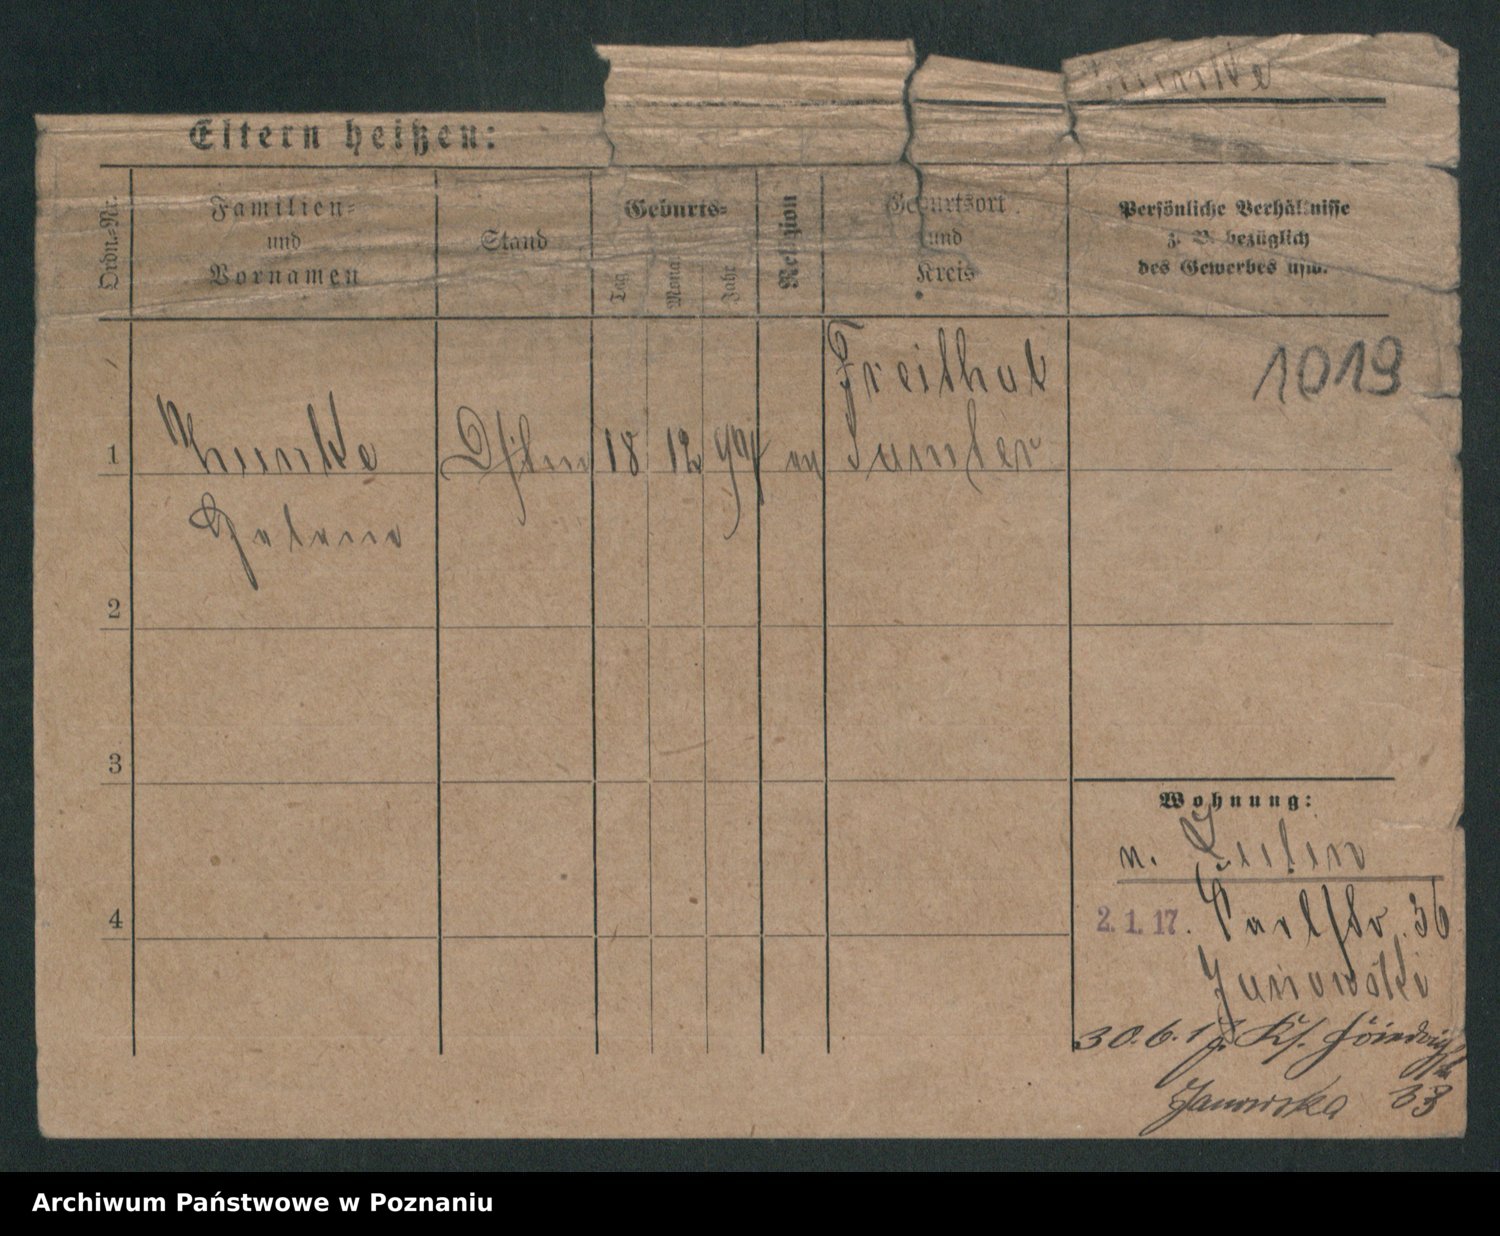 Eltern heißen:
Ordn.-Nr.
Familien-
und
Vornamen
Stand
Geburts-
Tag
Monat
Jahr
Religion
Geburtsort
und
Kreis
Persönliche Verhältnisse
z. B. bezüglich
des Gewerbes usw.
1019
1
18
12
ev
Freithal
Samter
2
3
4
Wohnung:
n.
2.1.17. Karlstr. 36
Janowski
30.6.17.
Janowska 33
Archiwum Państwowe w Poznaniu